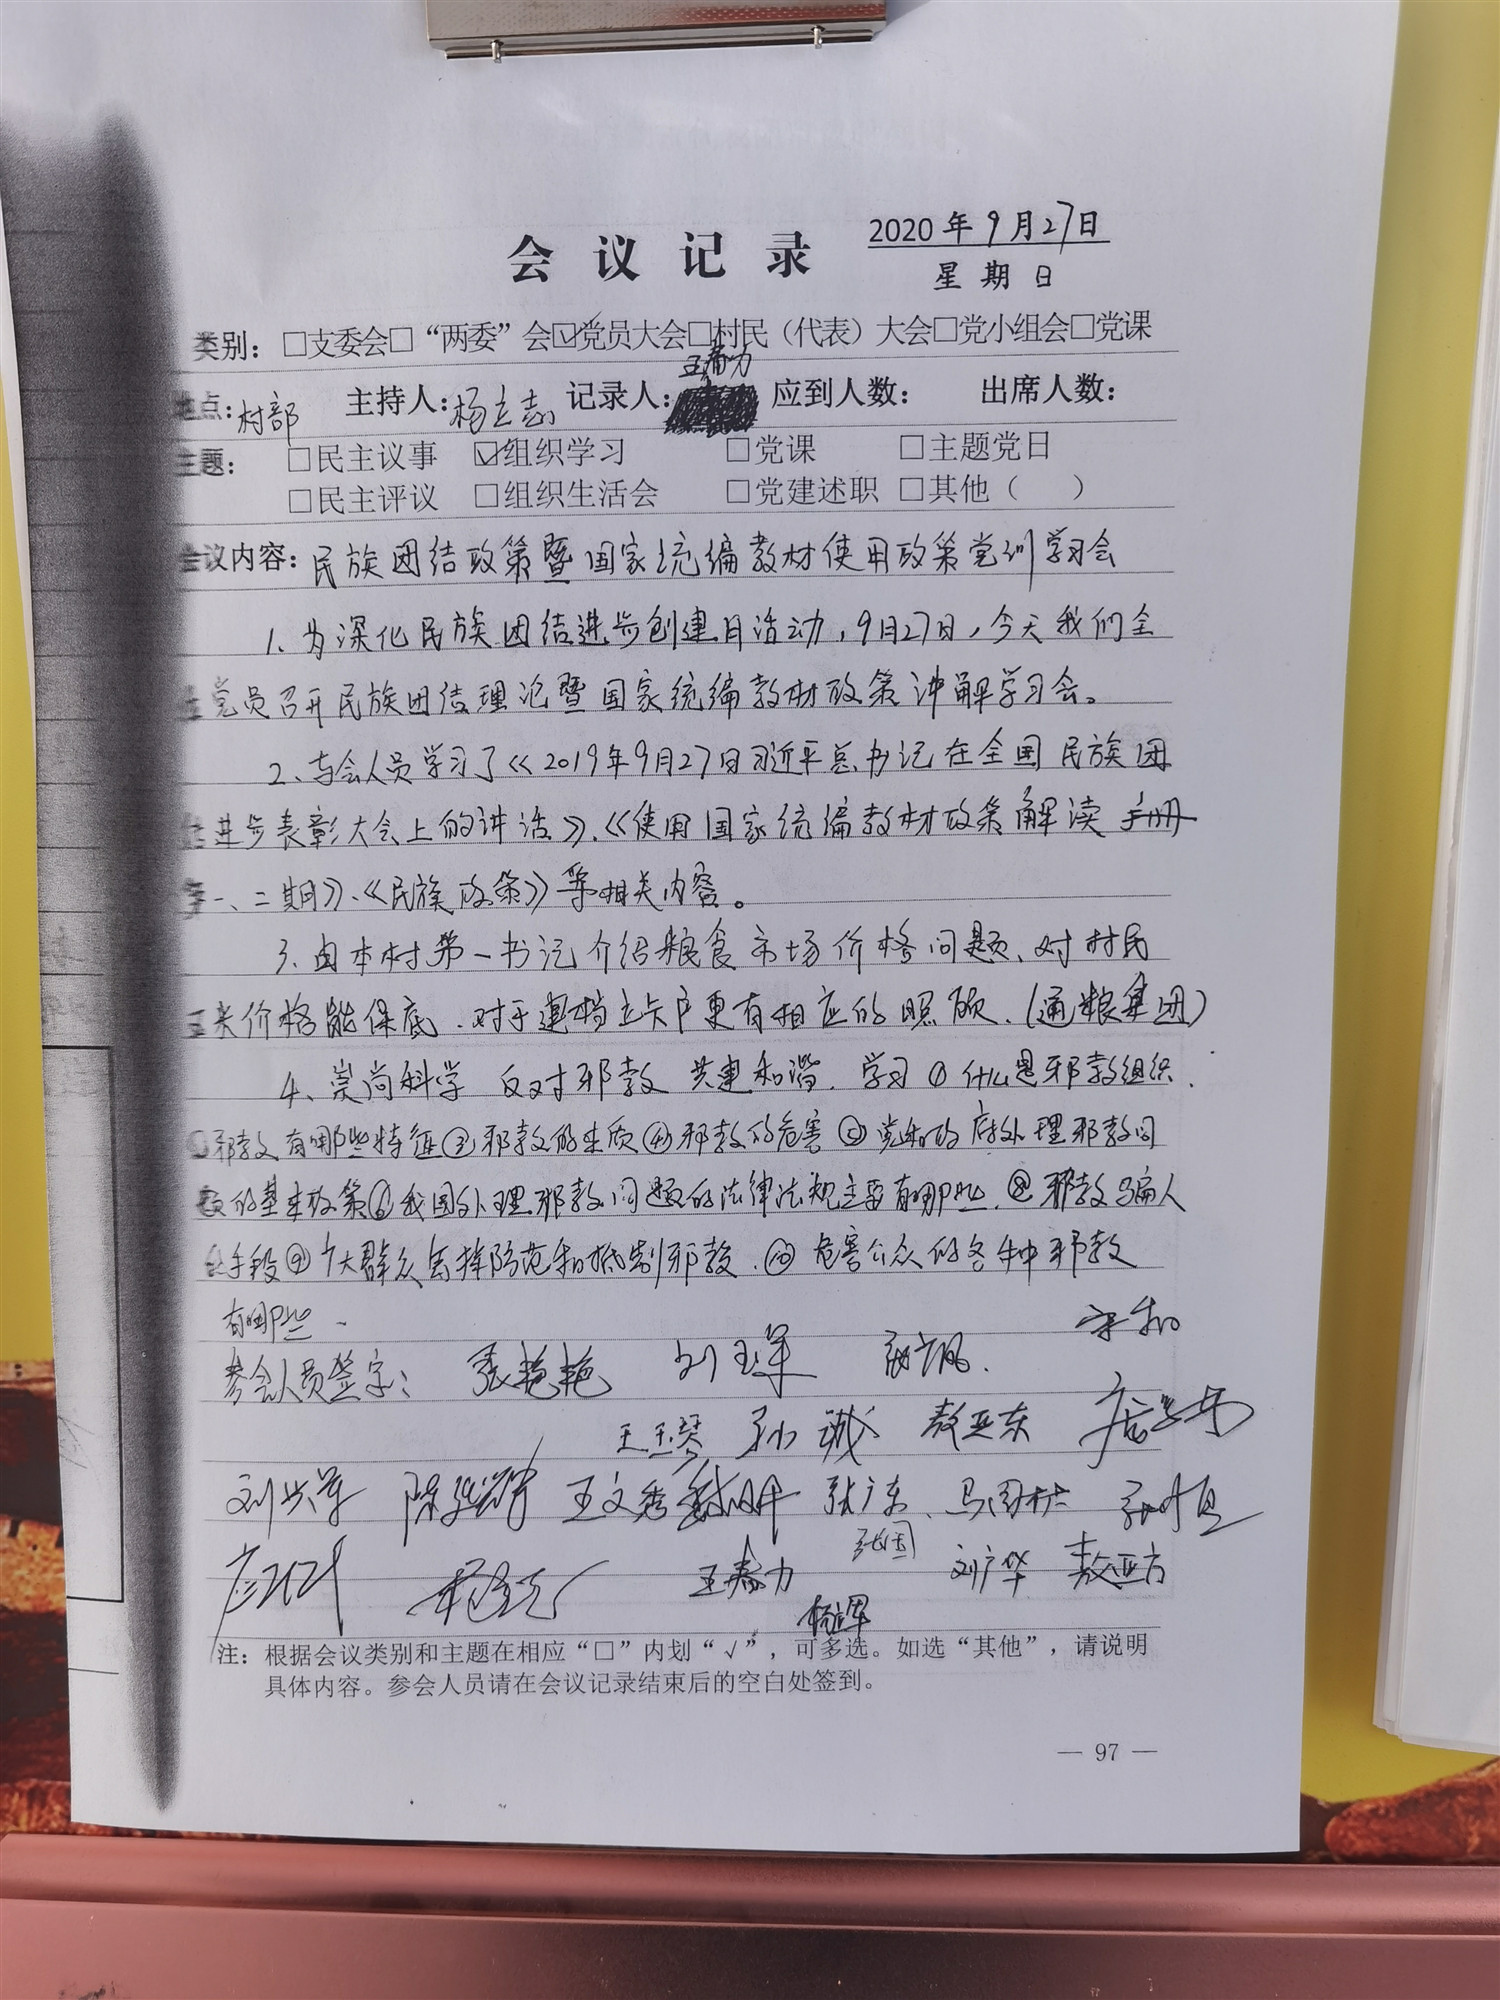 会议记录
2020年9月27日
星期日
类别：□支委会□“两委”会☑党员大会□村民（代表）大会□党小组会□党课
地点：村部 主持人：杨立志 记录人：王春力 应到人数： 出席人数：
主题： □民主议事 ☑组织学习 □党课 □主题党日
□民主评议 □组织生活会 □党建述职 □其他（ ）
会议内容：民族团结政策暨国家统编教材使用政策党训学习会
1、为深化民族团结进步创建月活动，9月27日，今天我们全
党员召开民族团结理论暨国家统编教材政策讲解学习会。
2、与会人员学习了《2019年9月27日习近平总书记在全国民族团
结进步表彰大会上的讲话》、《使用国家统编教材政策解读手册
第一、二期》、《民族政策》等相关内容。
3、由本村第一书记介绍粮食市场价格问题、对村民
玉米价格能保底、对于建档立卡户更有相应的照顾、（通粮集团）
4、崇尚科学 反对邪教 共建和谐、学习①什么是邪教组织、
②邪教有哪些特征③邪教的本质④邪教的危害⑤党和政府处理邪教问
题的基本政策⑥我国处理邪教问题的法律法规主要有哪些、⑧邪教骗人
的手段⑨广大群众怎样防范和抵制邪教、⑩危害公众的各种邪教
有哪些、
参会人员签字： 张艳艳 刘玉军 宋和
王玉琴 孙诚 敖亚东
刘兴军 王文秀 张广东
王春力 张国 刘广华 敖亚方
注：根据会议类别和主题在相应“□”内划“√”，可多选。如选“其他”，请说明
具体内容。参会人员请在会议记录结束后的空白处签到。
— 97 —